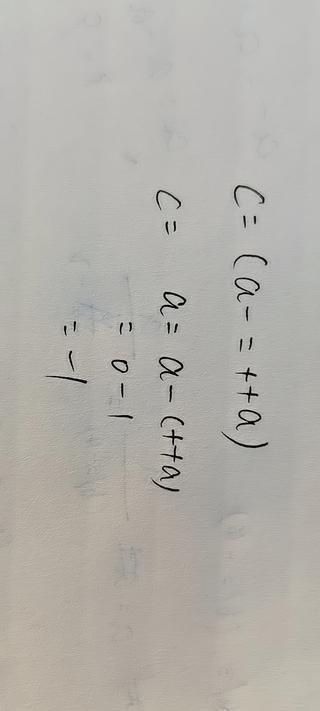 C = (a - = + + a)
C = a = a - (+ + a)
= 0 - 1
= -1